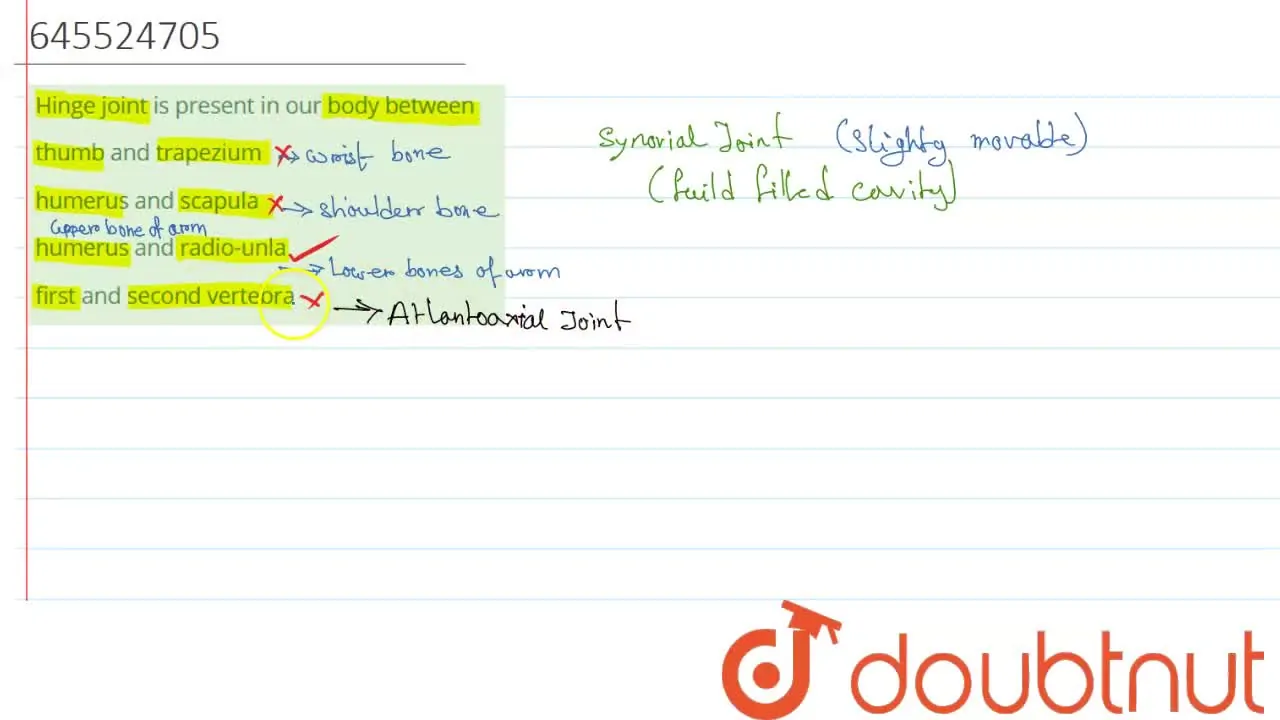 645524705
Hinge joint is present in our body between
thumb and trapezium x→ wrist bone
humerus and scapula x→ shoulder bone
upper bone of arm
humerus and radio-unla ✓
→ Lower bones of arom
first and second vertebra x → Atlantoaxial Joint
Synovial Joint (slighty movable)
(fuild filled cavity)
doubtnut